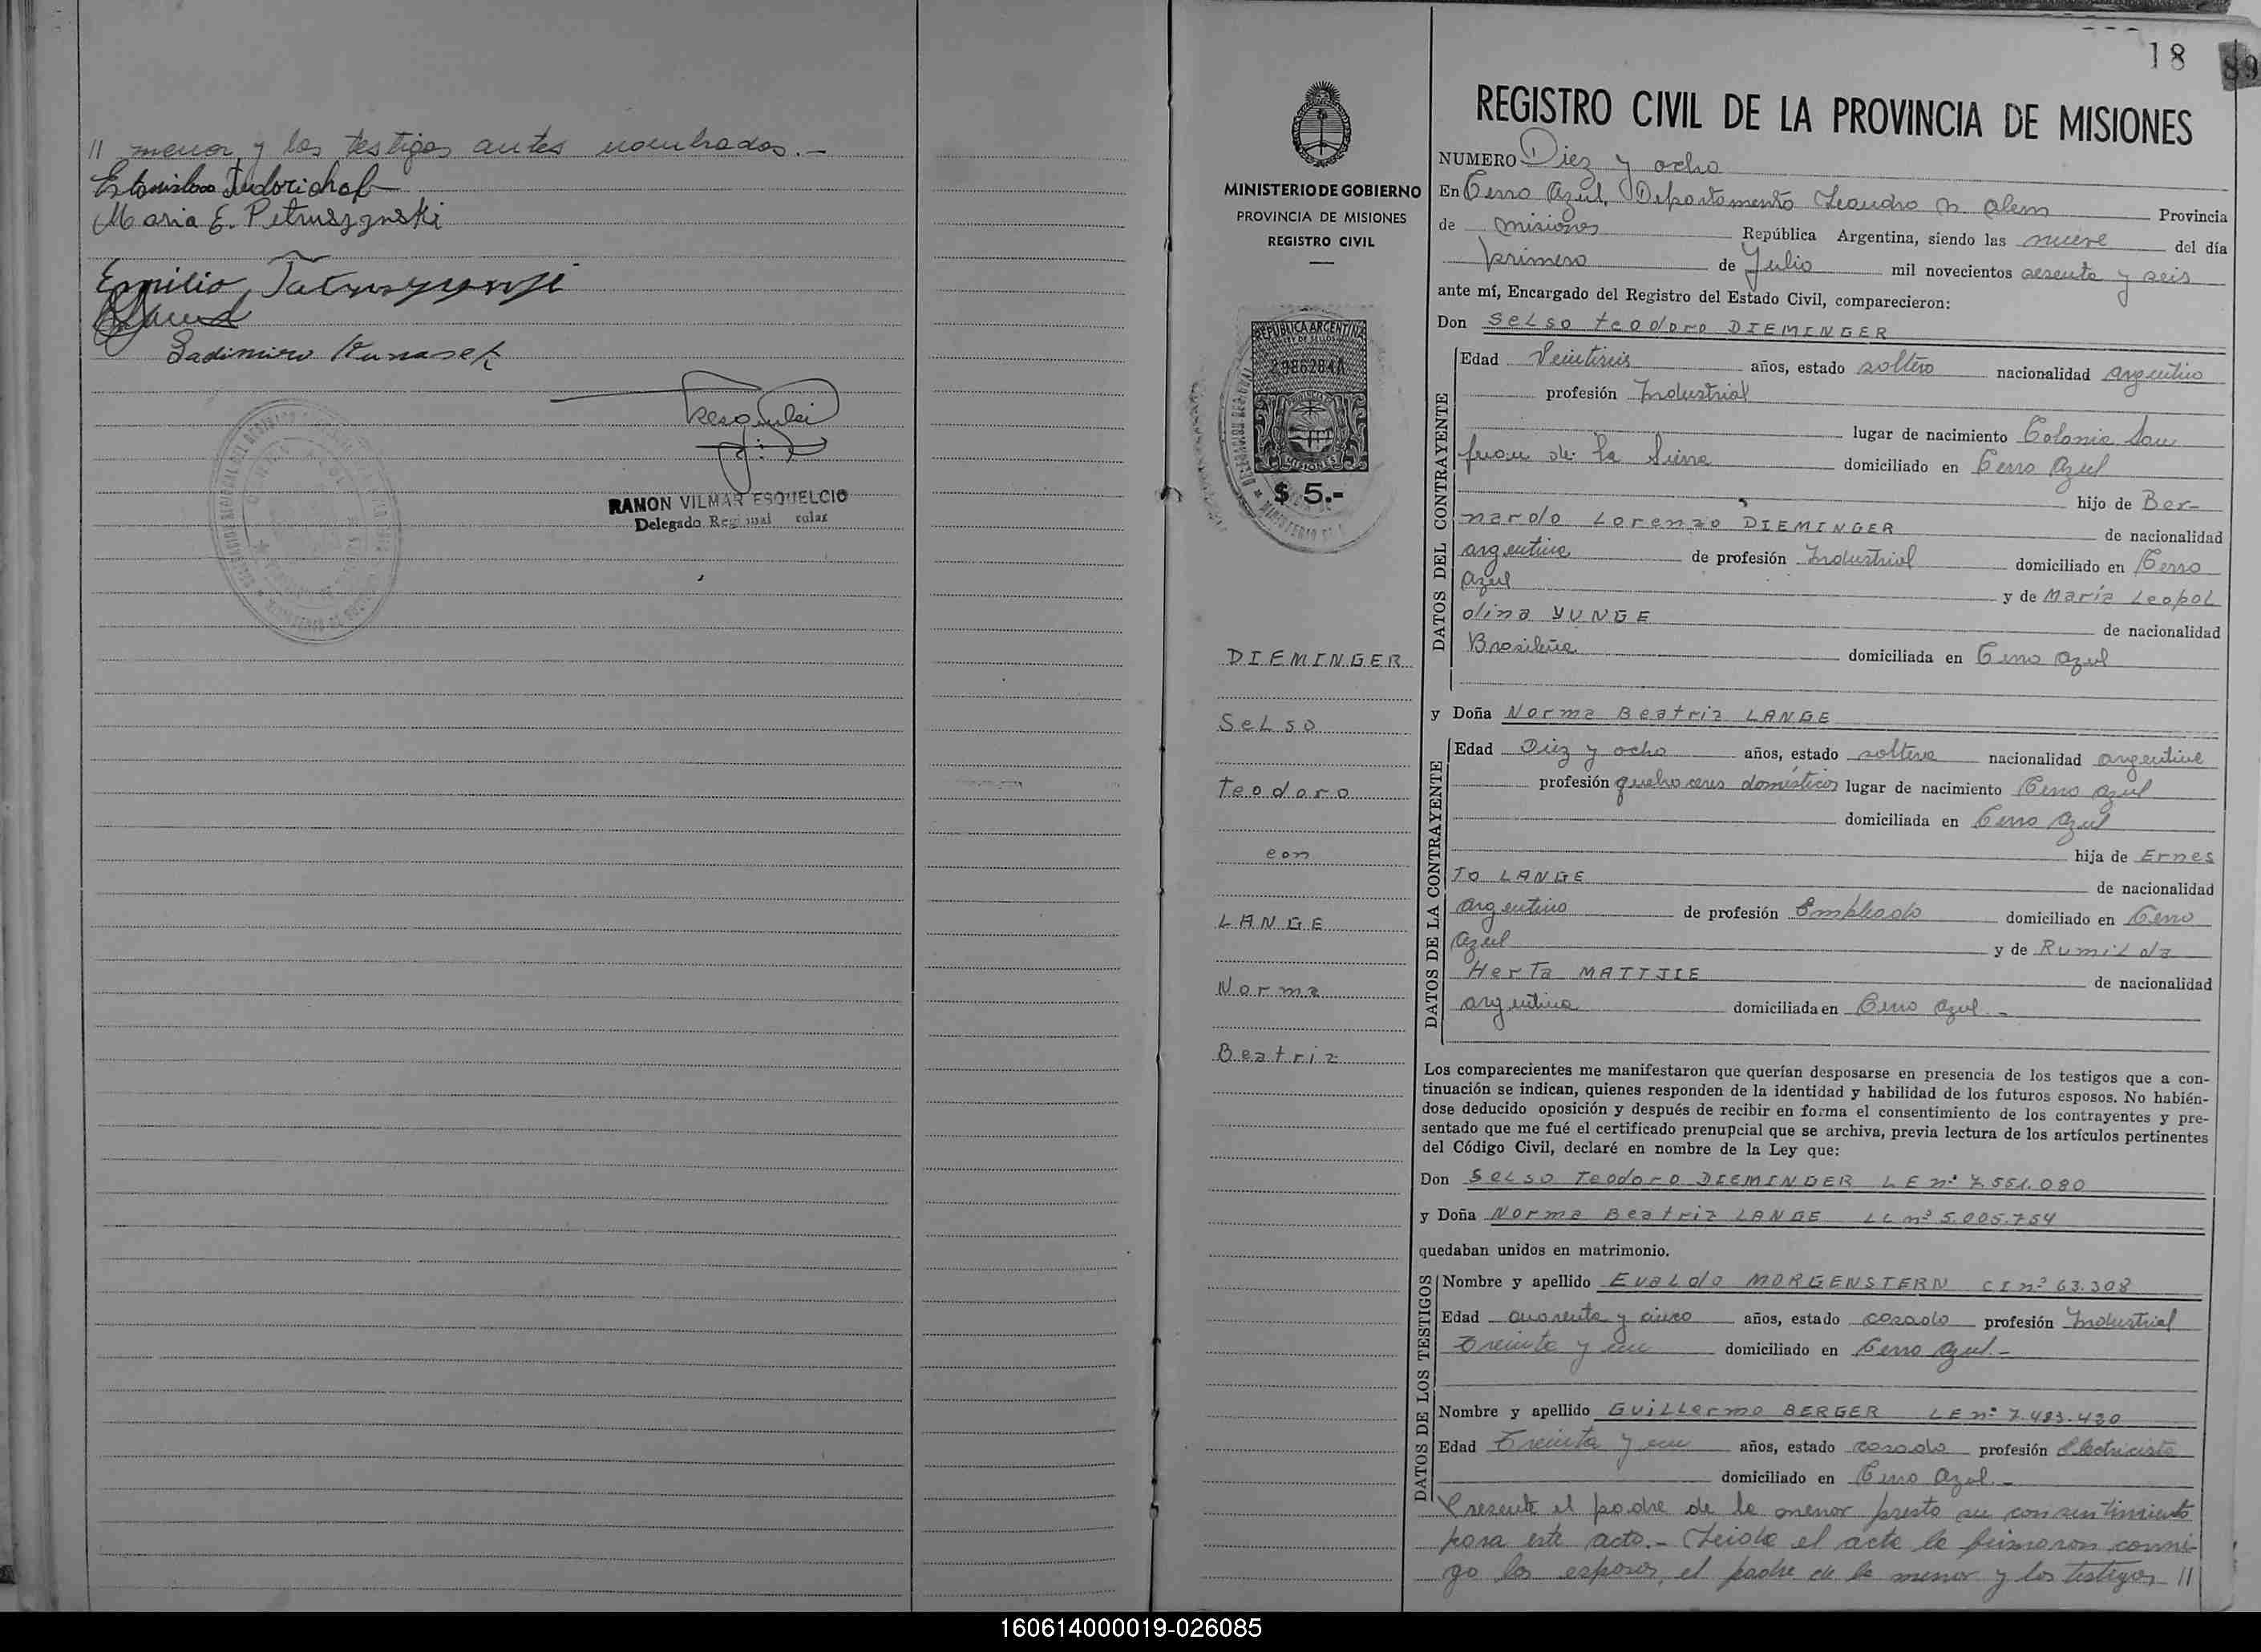 // menor y los testigos antes nombrados.-
Maria E. Petruszynski
Emilio
Ladimiro
RAMON VILMAR ESQUELCIO
Delegado Regional
18
89
REGISTRO CIVIL DE LA PROVINCIA DE MISIONES
MINISTERIO DE GOBIERNO
PROVINCIA DE MISIONES
REGISTRO CIVIL
REPUBLICA ARGENTINA
MISIONES
$ 5.-
DIEMINGER
Selso
Teodoro
con
LANGE
Norma
Beatriz
NUMERO Diez y ocho
En Cerro Azul, Departamento Leandro N. Alem Provincia
de Misiones República Argentina, siendo las nueve del día
primero de Julio mil novecientos sesenta y seis
ante mí, Encargado del Registro del Estado Civil, comparecieron:
Don Selso Teodoro DIEMINGER
DATOS DEL CONTRAYENTE
Edad Veintiseis años, estado soltero nacionalidad argentino
profesión Industrial
lugar de nacimiento Colonia San
Juan de la Sierra domiciliado en Cerro Azul
hijo de Ber-
nardo Lorenzo DIEMINGER de nacionalidad
argentina de profesión Industrial domiciliado en Cerro
Azul y de María Leopol
dina YUNGE de nacionalidad
Brasileña domiciliada en Cerro Azul
y Doña Norma Beatriz LANGE
DATOS DE LA CONTRAYENTE
Edad Diez y ocho años, estado soltera nacionalidad argentina
profesión quehaceres domésticos lugar de nacimiento Cerro Azul
domiciliada en Cerro Azul
hija de Ernes
to LANGE de nacionalidad
argentino de profesión Empleado domiciliado en Cerro
Azul y de Rumilda
Herta MATTJIE de nacionalidad
argentina domiciliada en Cerro Azul.-
Los comparecientes me manifestaron que querían desposarse en presencia de los testigos que a con-
tinuación se indican, quienes responden de la identidad y habilidad de los futuros esposos. No habién-
dose deducido oposición y después de recibir en forma el consentimiento de los contrayentes y pre-
sentado que me fué el certificado prenupcial que se archiva, previa lectura de los artículos pertinentes
del Código Civil, declaré en nombre de la Ley que:
Don Selso Teodoro DIEMINGER L E nº 7.551.080
y Doña Norma Beatriz LANGE LC nº 5.005.754
quedaban unidos en matrimonio.
DATOS DE LOS TESTIGOS
Nombre y apellido Evaldo MORGENSTERN C I nº 63.308
Edad cuarenta y cinco años, estado casado profesión Industrial
Treinta y un domiciliado en Cerro Azul.-
Nombre y apellido Guillermo BERGER L E nº 7.483.420
Edad Treinta y un años, estado casado profesión Electricista
domiciliado en Cerro Azul.-
Presente el padre de la menor presta su consentimiento
para este acto.- Leida el acta la firmaron conmi-
go los esposos, el padre de la menor y los testigos //
160614000019-026085